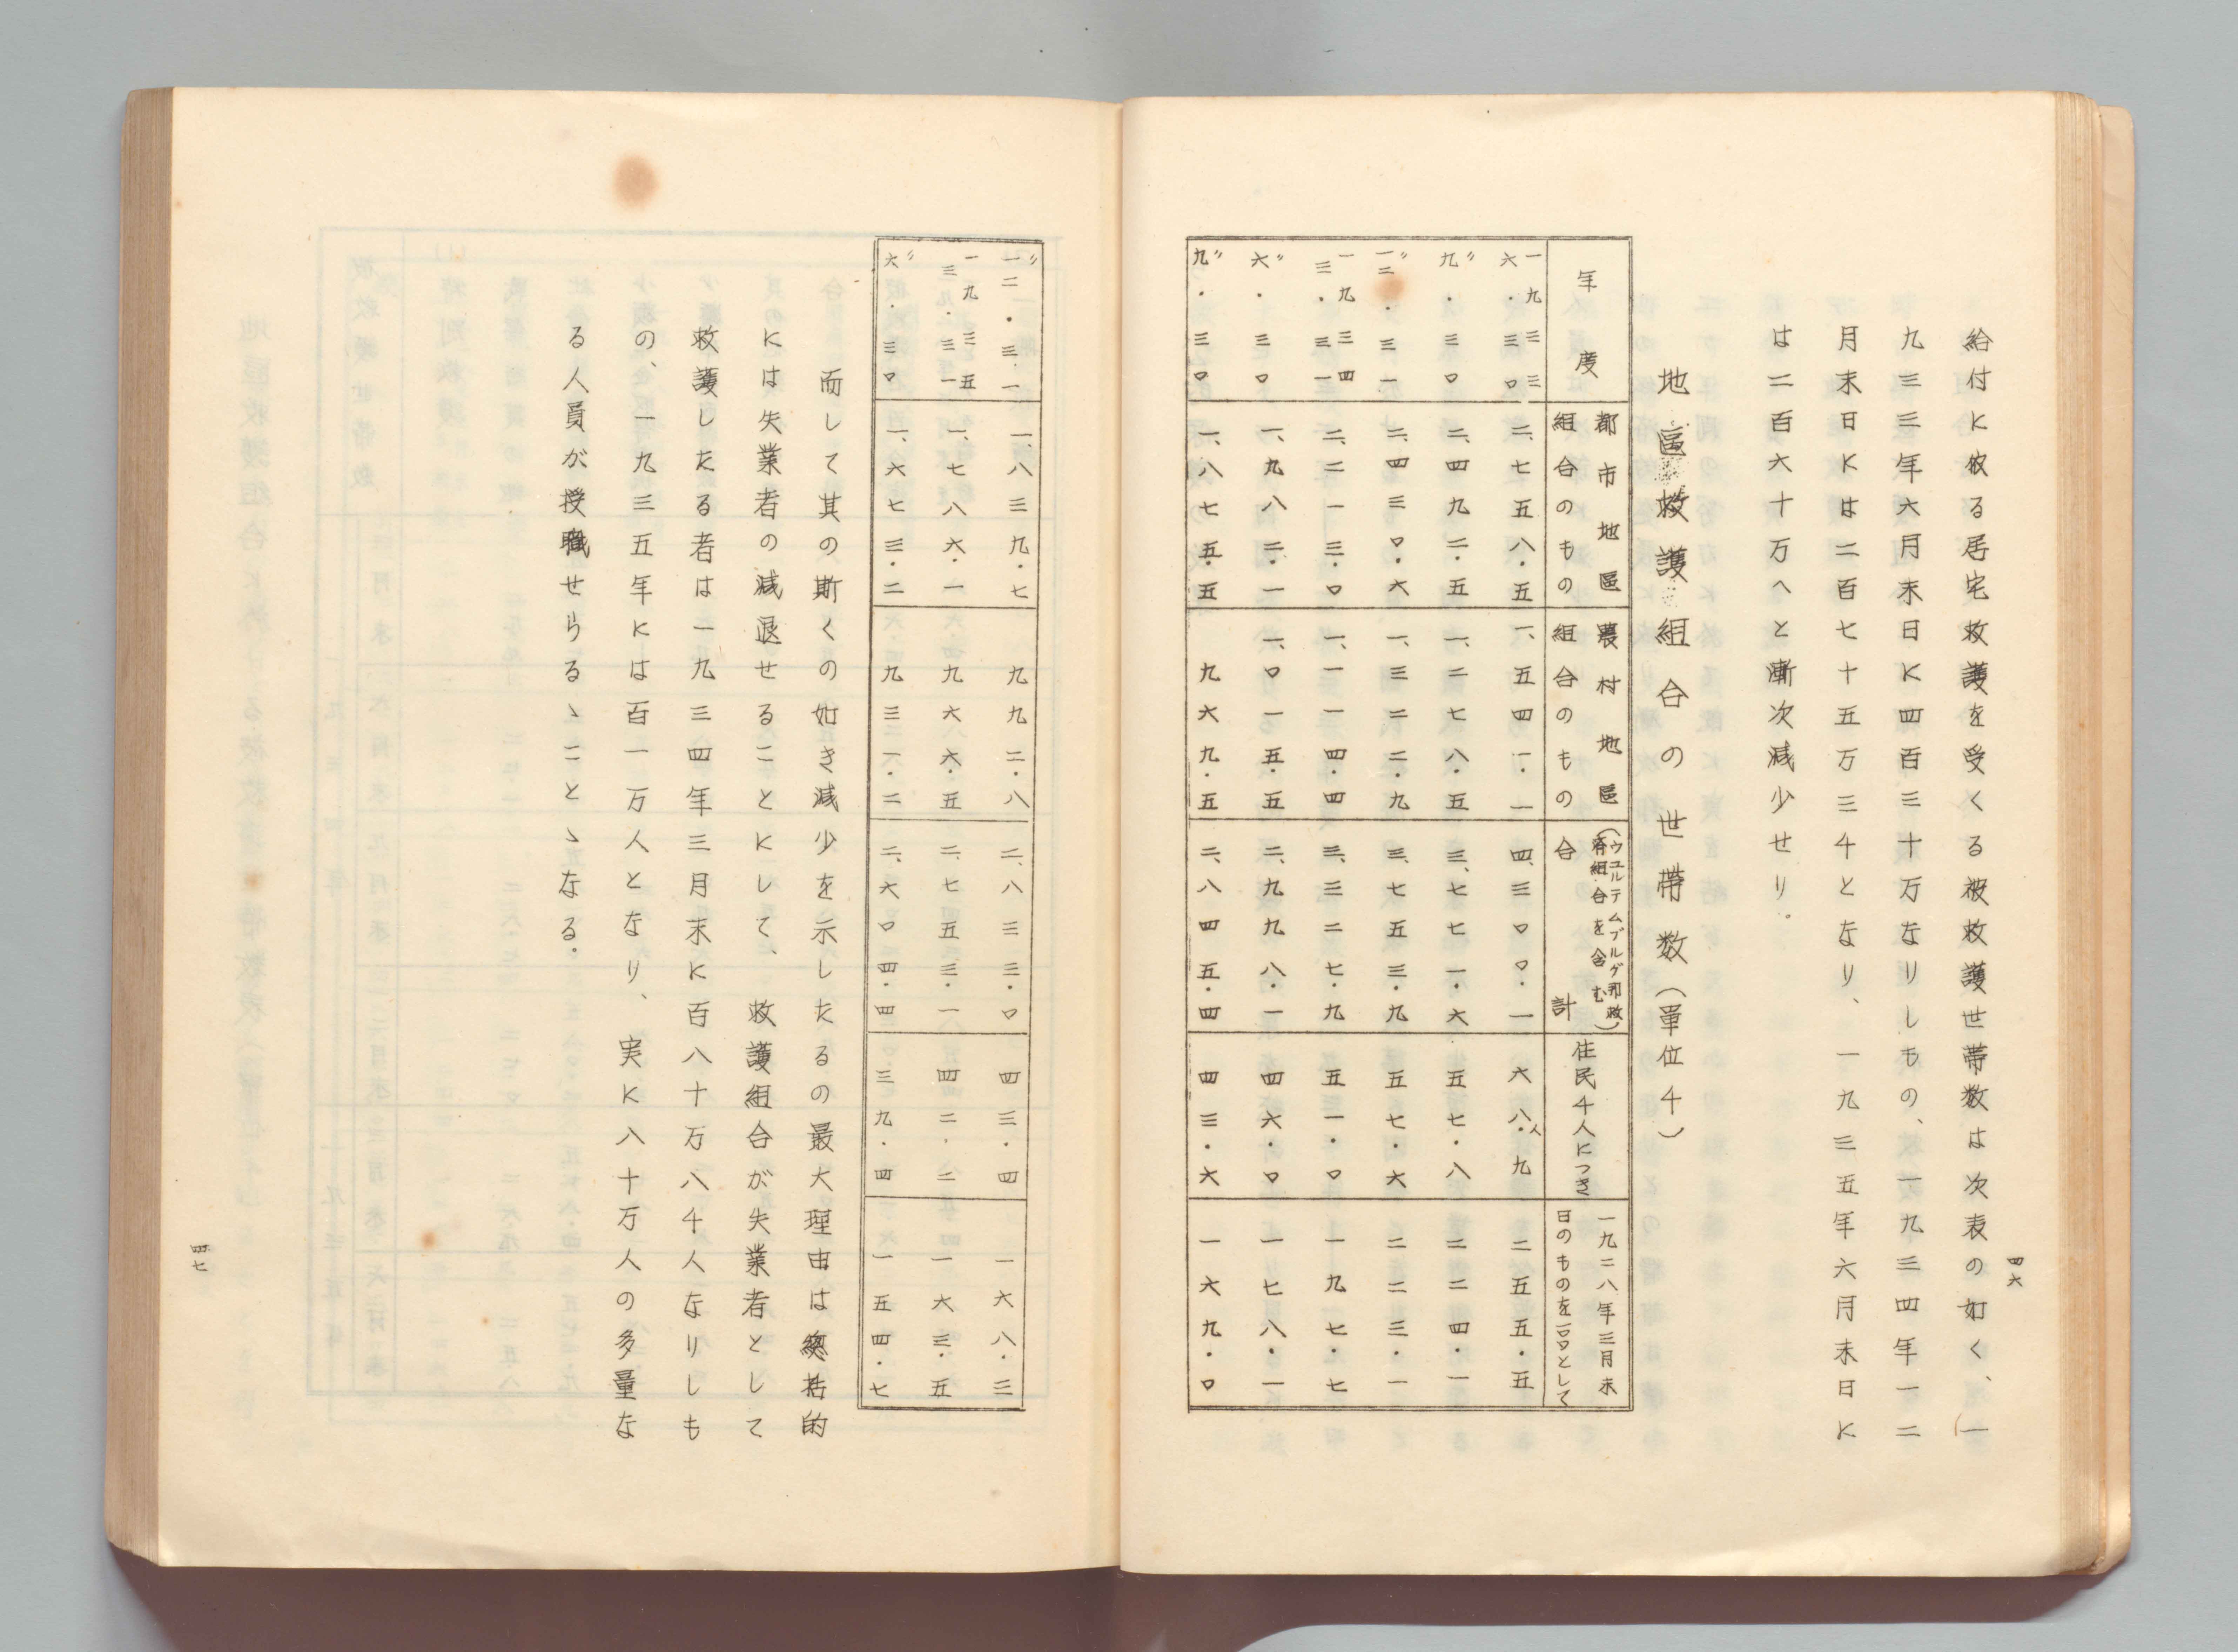 四六
給付に依る居宅救護を受くる被救護世帯数は次表の如く、一
九三三年六月末日に四百三十万なりしもの、一九三四年一二
月末日には二百七十五万三千となり、一九三五年六月末日に
は二百六十万へと漸次減少せり。
地區救護組合の世帯数(単位千)
年度
都市地區
組合のもの
農村地區
組合のもの
(ウユルテムブルグ邦救
済組合を含む)
合計
住民千人につき
一九二八年三月末
日のものを一〇〇として
一九三三
六・三〇 二、七五八・五 一、五四一・一 四、三〇〇・一 六八・九人 二五五・五
〃
九・三〇 二、四九二・五 一、二七八・五 三、七七一・六 五七・八 二二四・一
〃
一二・三一 二、四三〇・六 一、三二二・九 三、七五三・九 五七・六 二二三・一
一九三四
三・三一 二、二一三・〇 一、一一四・四 三、三二七・九 五一・〇 一九七・七
〃
六・三〇 一、九八二・一 一、〇一五・五 二、九九八・一 四六・〇 一七八・一
〃
九・三〇 一、八七五・五 九六九・五 二、八四五・四 四三・六 一六九・〇
〃
一二・三一 一、八三九・七 九九二・八 二、八三三・〇 四三・四 一六八・三
一九三五
三・三一 一、七八六・一 九六六・五 二、七五三・一 四二・二 一六三・五
〃
六・三〇 一、六七三・二 九三一・二 二、六〇四・四 三九・四 一五四・七
而して其の斯くの如き減少を示したるの最大理由は総括的
には失業者の減退せることにして、救護組合が失業者として
救護したる者は一九三四年三月末に百八十万八千人なりしも
の、一九三五年には百一万人となり、実に八十万人の多量な
る人員が授職せらるゝことゝなる。
四七